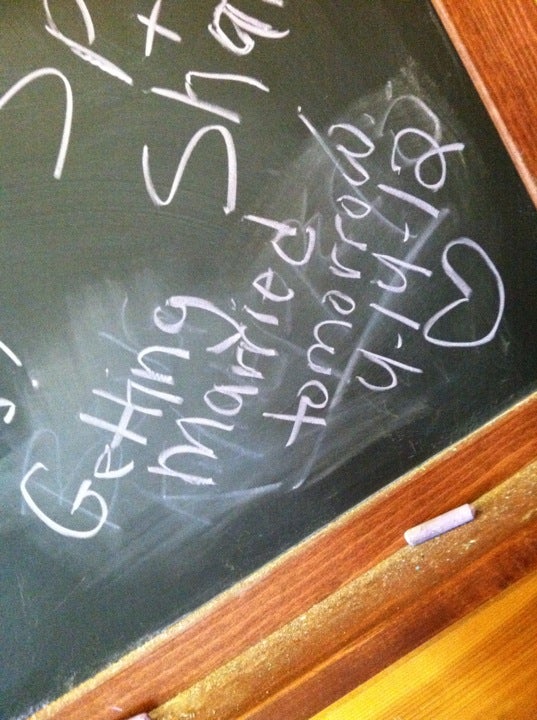 Getting
married
tomorrow
4.14.12